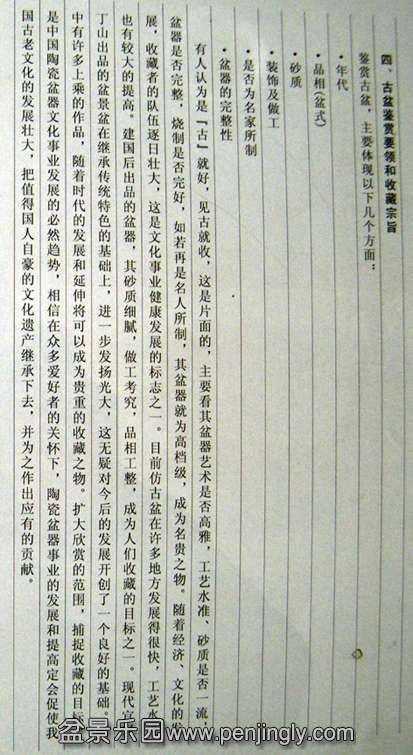 四、古盆鉴赏要领和收藏宗旨
鉴赏古盆，主要体现以下几个方面：
·年代
·品相(盆式)
·砂质
·装饰及做工
·是否为名家所制
·盆器的完整性
有人认为是『古』就好，见古就收，这是片面的，主要看其盆器艺术是否高雅，工艺水准、砂质是否一流，
盆器是否完整，烧制是否完好，如若再是名人所制，其盆器就为高档级，成为名贵之物。随着经济、文化的发
展，收藏者的队伍逐日壮大，这是文化事业健康发展的标志之一。目前仿古盆在许多地方发展得很快，工艺水
也有较大的提高。建国后出品的盆器，其砂质细腻，做工考究，品相工整，成为人们收藏的目标之一。现代宜
丁山出品的盆景盆在继承传统特色的基础上，进一步发扬光大，这无疑对今后的发展开创了一个良好的基础。
中有许多上乘的作品，随着时代的发展和延伸将可以成为贵重的收藏之物。扩大欣赏的范围，捕捉收藏的目标
是中国陶瓷盆器文化事业发展的必然趋势，相信在众多爱好者的关怀下，陶瓷盆器事业的发展和提高定会促使我
国古老文化的发展壮大，把值得国人自豪的文化遗产继承下去，并为之作出应有的贡献。
盆景乐园www.penjingly.com